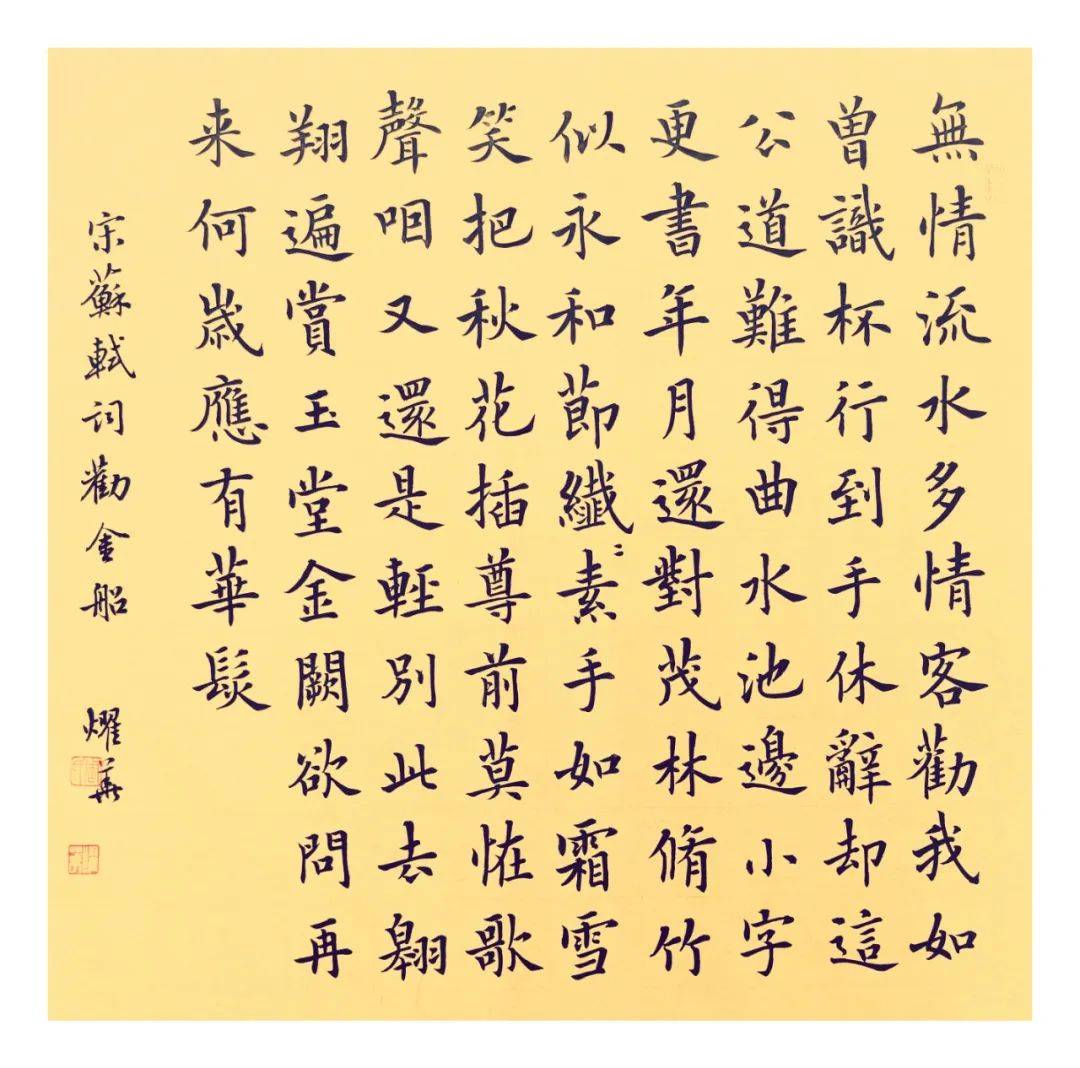 無情流水多情客勸我如
曾識杯行到手休辭却這
公道難得曲水池邊小字
更書年月還對茂林脩竹
似永和節纖〻素手如霜雪
笑把秋花插尊前莫恠歌
聲咽又還是輕別此去翱
翔遍賞玉堂金闕欲問再
来何歲應有華髮
宋蘇軾詞勸金船 燿華